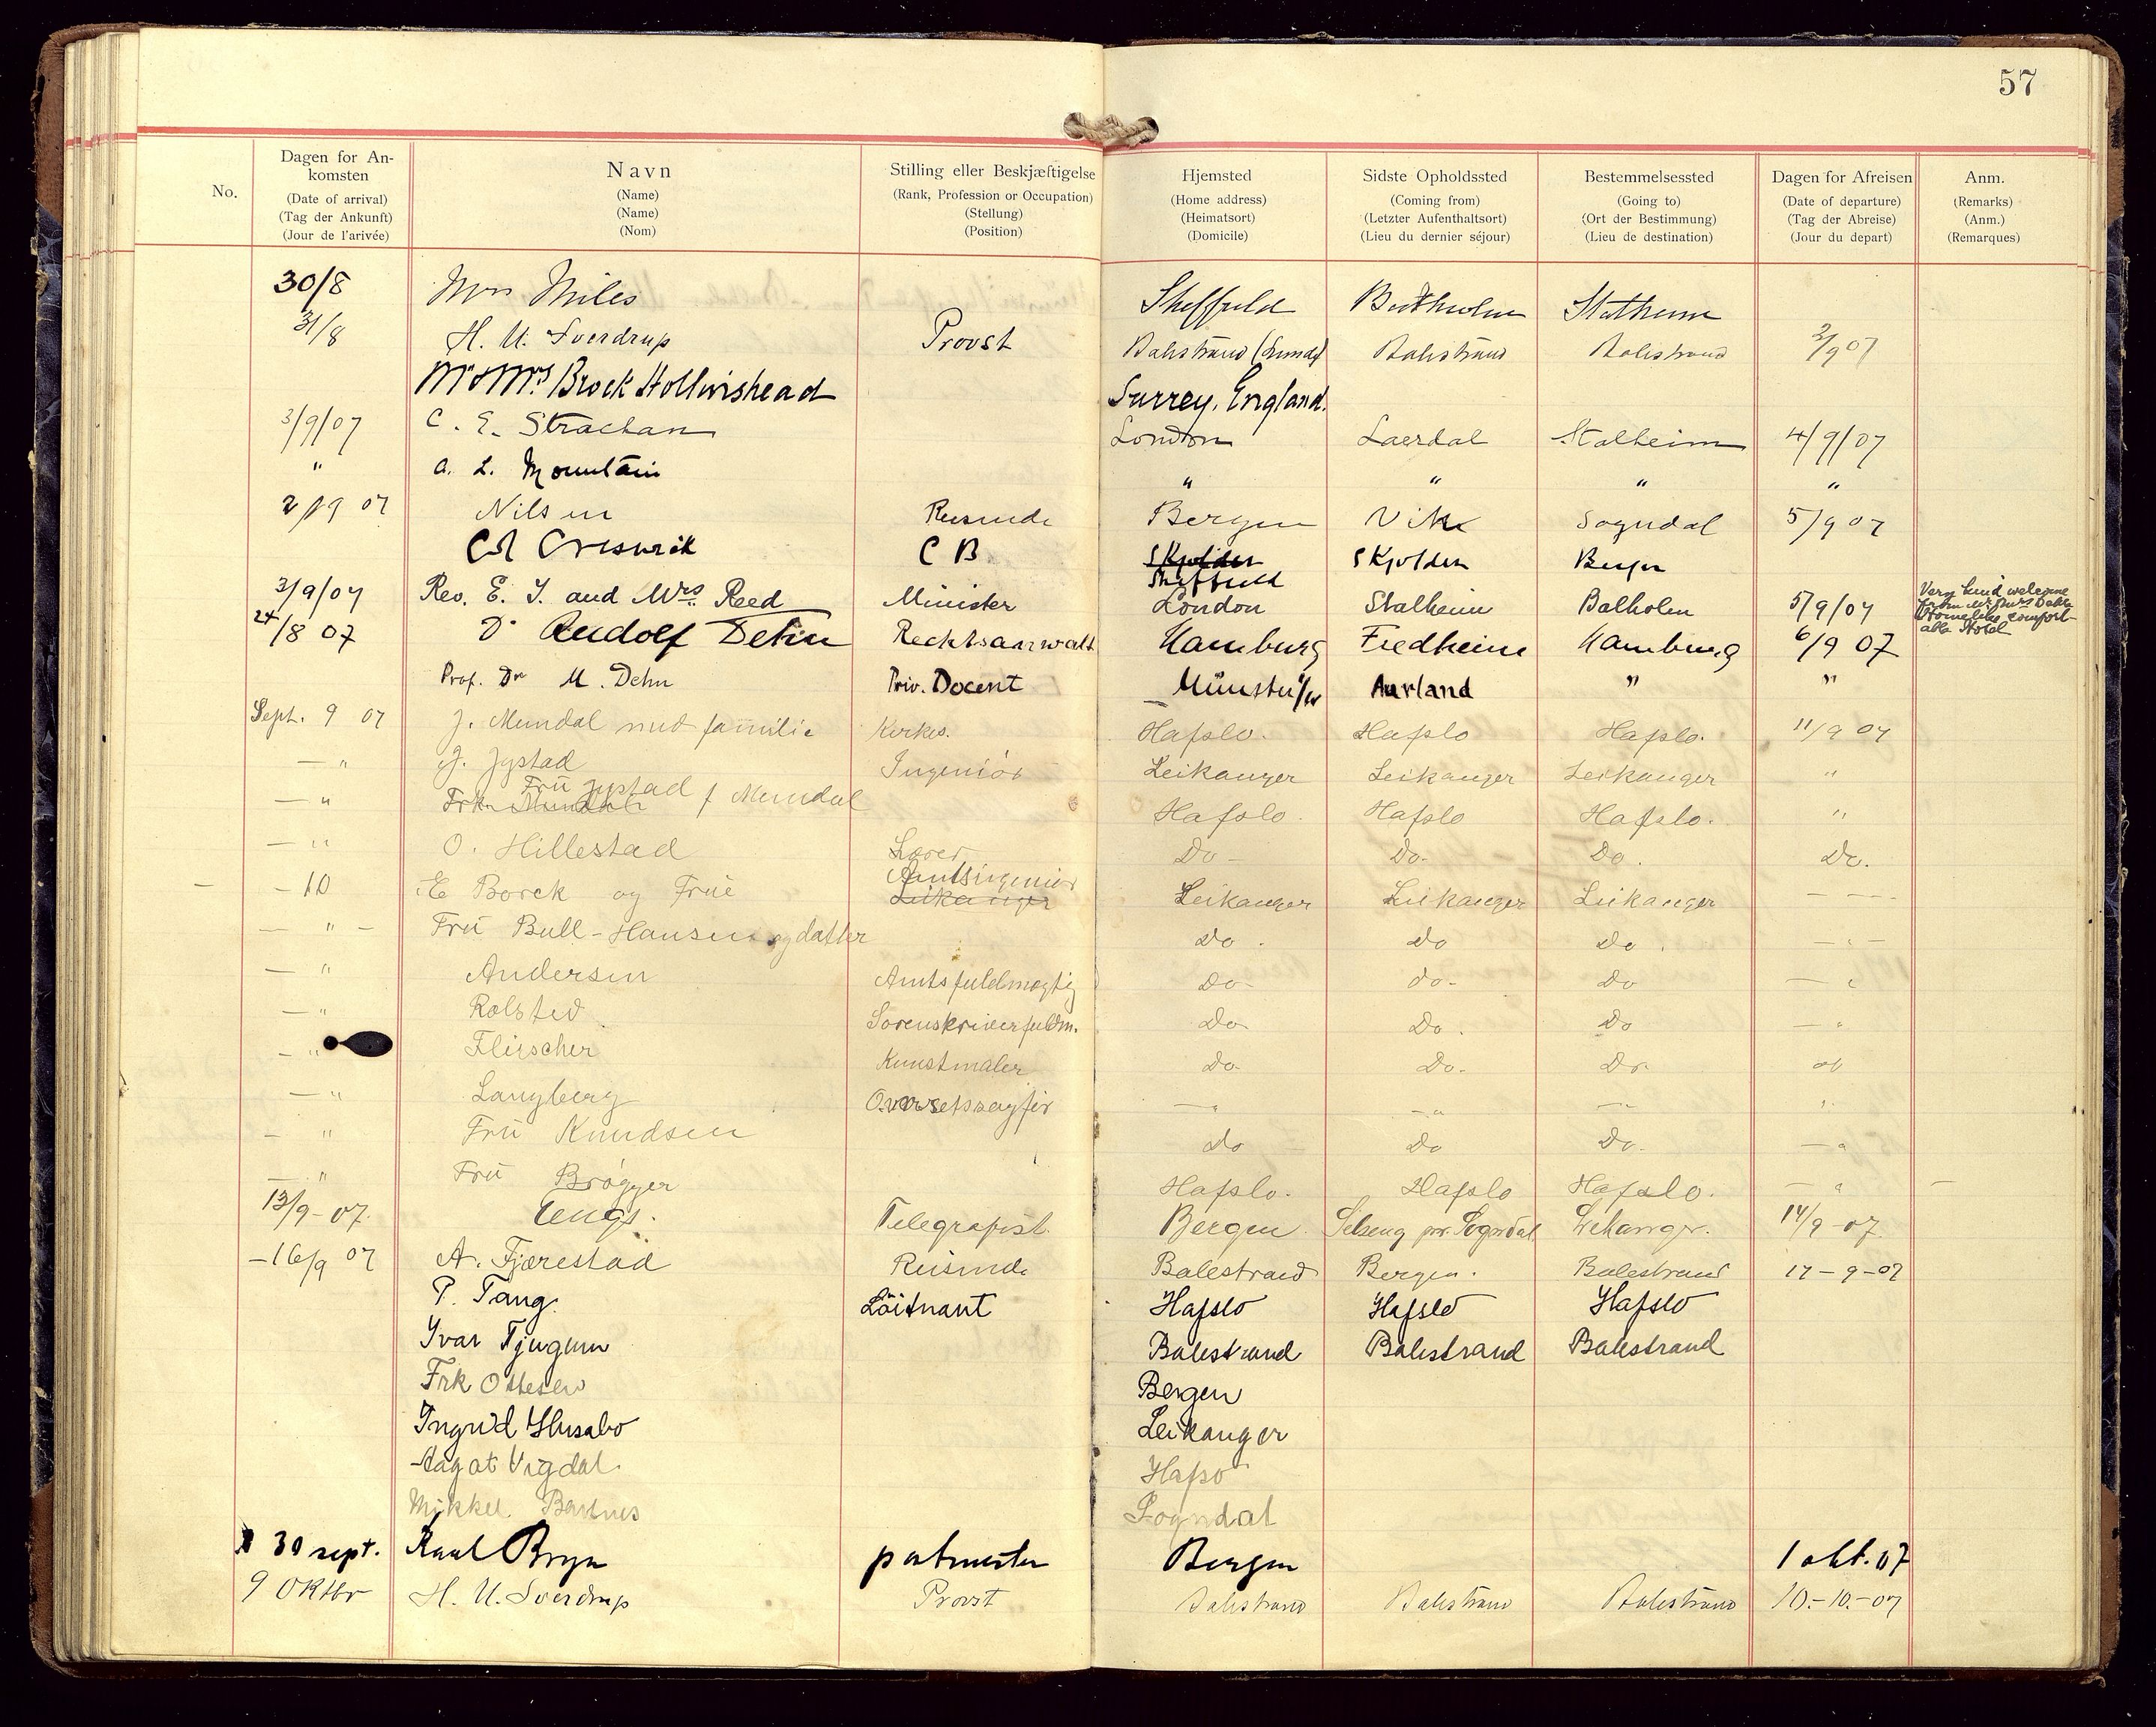 57
No.
Dagen for An-
komsten
(Date of arrival)
(Tag der Ankunft)
(Jour de l'arivée)
Navn
(Name)
(Name)
(Nom)
Stilling eller Beskjæftigelse
(Rank, Profession or Occupation)
(Stellung)
(Position)
Hjemsted
(Home address)
(Heimatsort)
(Domicile)
Sidste Opholdssted
(Coming from)
(Letzter Aufenthaltsort)
(Lieu du dernier séjour)
Bestemmelsessted
(Going to)
(Ort der Bestimmung)
(Lieu de destination)
Dagen for Afreisen
(Date of departure)
(Tag der Abreise)
(Jour du depart)
Anm.
(Remarks)
(Anm.)
(Remarques)
30/8 Mrs Miles Sheffield
31/8 H. U. Sverdrup Provst Balestrand Balestrand Balestrand 2/9 07
Mr & Mrs Brock Hollinshead Surrey, England.
3/9/07 C. E. Strachan London Laerdal Stalheim 4/9/07
" A. L. Mountain " " " "
2/9 07 Nilsen Reisende Bergen Vik Sogndal 5/9 07
Col Creswick C B Skjolden Skjolden Bergen
Sheffield
3/9/07 Rev. E. I. and Mrs Reed Minister London Stalheim Balholm 5/9/07 Very kind welcome
Homelike comfort-
able Hotel
24/8 07 Dr Rudolf Dehn Rechtsanwalt Hamburg Fredheim Hamburg 6/9 07
Prof. Dr M. Dehn Priv. Docent Münster i/W Aurland " "
Sept. 9 07 J. Mundal med familie Kirkes. Hafslo. Hafslo Hafslo. 11/9 07
— " J. Jystad Ingeniör Leikanger Leikanger Leikanger "
Frü Jystad f Mundal
— " Frk. Mundal Hafslo. Hafslo Hafslo. "
— " O. Hillestad Lærer Do - Do. Do. Do.
Amtsingeniør
— 10 E Borck og Frue Leikanger Leikanger Leikanger Leikanger — —
— " — Frü Bull-Hansen og datter Do. Do Do. — " —
— " Andersen Amtsfuldmægtig Do- do- Do — "
— " Rolsted Sorenskriverfuldm. Do Do. Do — "
— " Fleischer Kunstmaler Do- Do- Do- do
— " Langberg — " — " — " "
— " Frü Knudsen do Do Do. — "
— " Frü Brøgger Hafslo. Hafslo Hafslo. — " —
13/9-07. Engs. Telegrafist. Bergen. Selseng pr. Sogndal Leikanger. 14/9-07
— 16/9 07 A. Fjærestad Reisende Balestrand Bergen. Balestrand 17-9-07
P. Tang. Löitnant Hafslo Hafslo Hafslo
Ivar Tjugum Balestrand Balestrand Balestrand
Frk Ottesen Bergen
Ingrid Husabo Leikanger
Aagot Vigdal Hafso
Mikkel Sogndal
30 sept. Karl Bryn postmester Bergen 1 okt. 07
9 Oktbr H. U. Sverdrup Provst Balestrand Balestrand Balestrand 10.-10.-07